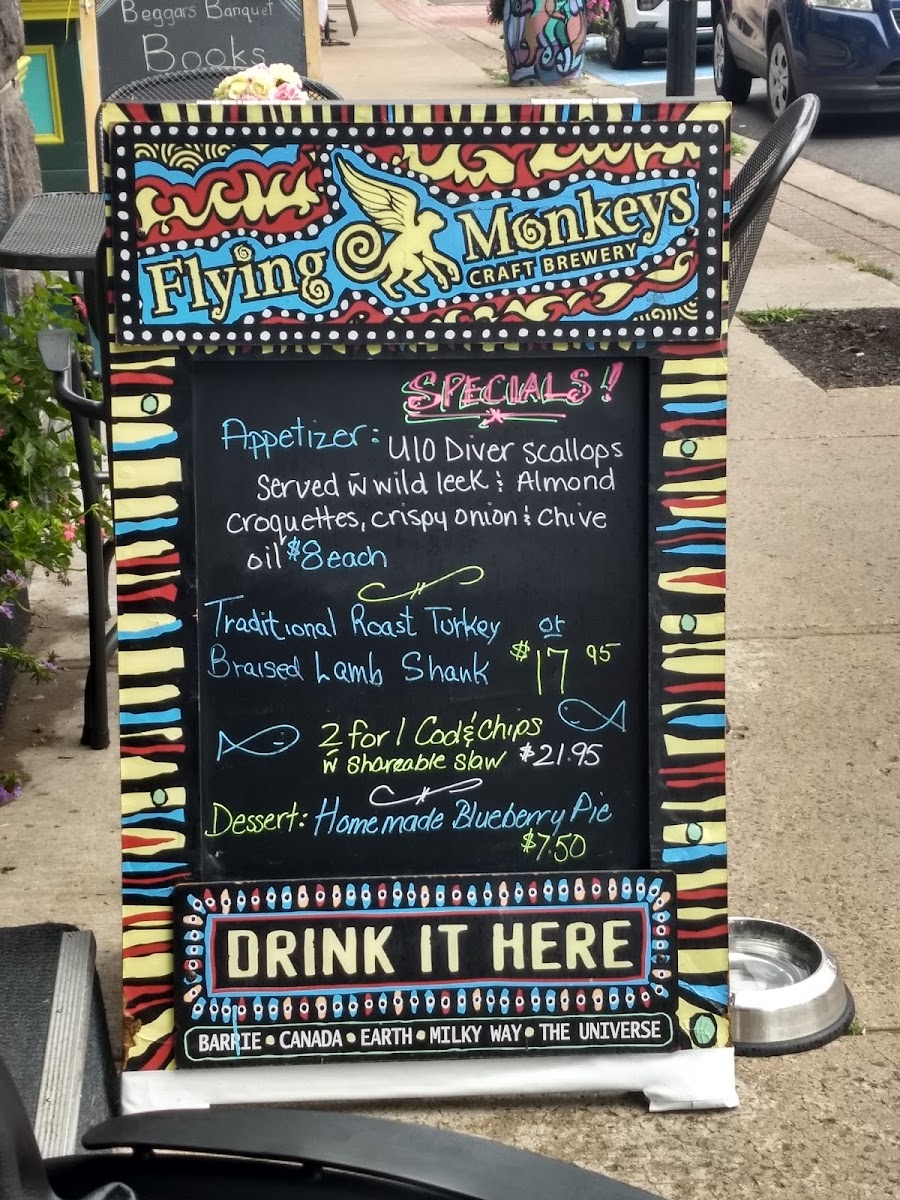 Beggars Banquet
Books
Flying Monkeys
CRAFT BREWERY
SPECIALS!
Appetizer: U10 Diver Scallops
Served w̄ wild leek & Almond
Croquettes, crispy onion & Chive
oil $8 each
Traditional Roast Turkey or
Braised Lamb Shank $17 95
2 for 1 Cod & Chips
w̄ Shareable Slaw $21.95
Dessert: Homemade Blueberry Pie
$7.50
DRINK IT HERE
BARRIE • CANADA • EARTH • MILKY WAY • THE UNIVERSE